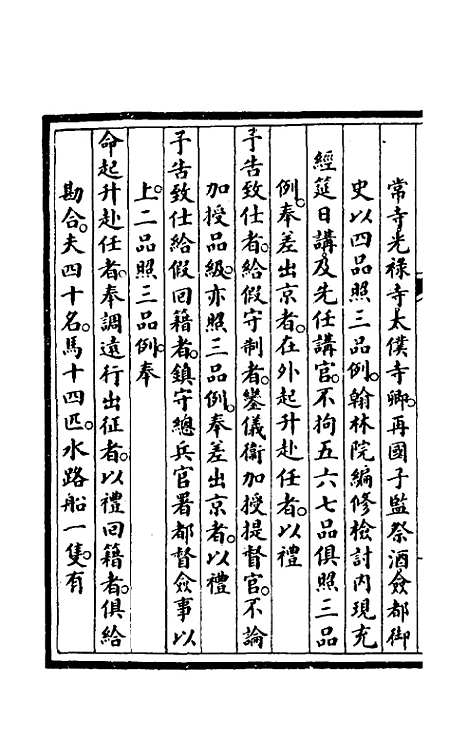 常寺光祿寺太僕寺卿。再國子監祭酒僉都御
史以四品照三品例。翰林院編修檢討內現充
經筵日講及先任講官。不拘五六七品俱照三品
例。奉差出京者。在外起升赴任者。以禮
予告致仕者。給假守制者。鑾儀衞加授提督官。不論
加授品級。亦照三品例。奉差出京者。以禮
予告致仕給假回籍者。鎮守總兵官署都督僉事以
上。二品照三品例。奉
命起升赴任者。奉調遠行出征者。以禮回籍者。俱給
勘合。夫四十名。馬十四匹。水路船一隻。有